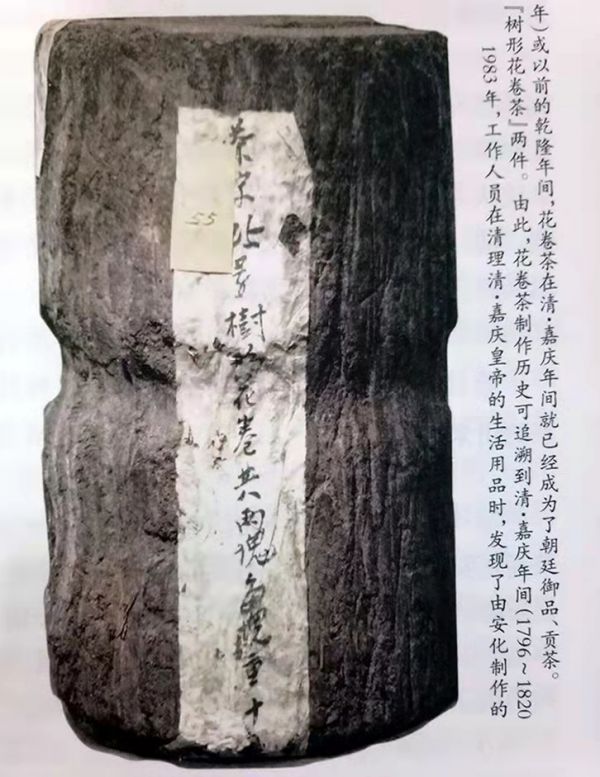 1983 年，工作人员在清理清·嘉庆皇帝的生活用品时，发现了由安化制作的
『树形花卷茶』两件。由此，花卷茶制作历史可追溯到清·嘉庆年间(1796~1820
年)或以前的乾隆年间，花卷茶在清·嘉庆年间就已经成为了朝廷御品、贡茶。
茶字號樹形花卷共兩塊每塊重十
55